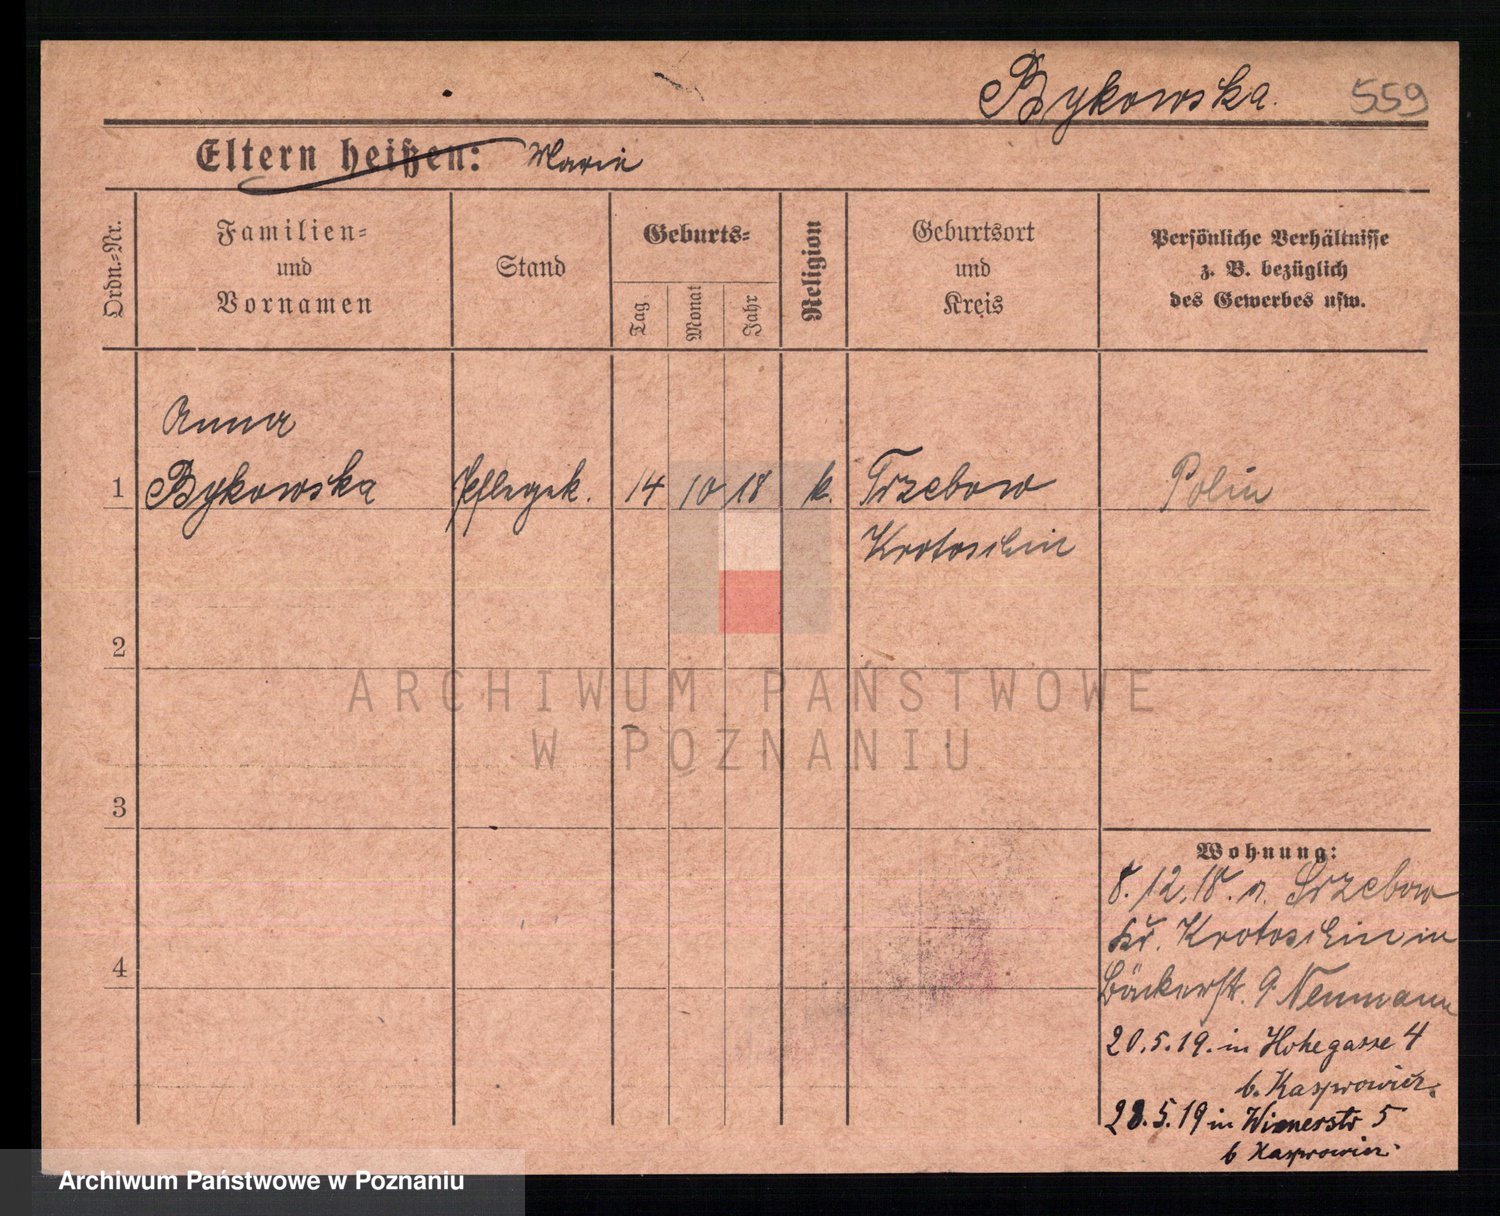 Bykowska. 559
Eltern heißen: Marie
Ordn.-Nr.
Familien-
und
Vornamen
Stand
Geburts-
Tag
Monat
Jahr
Religion
Geburtsort
und
Kreis
Persönliche Verhältnisse
z. B. bezüglich
des Gewerbes usw.
Anna
1 Bykowska Pflegek. 14 10 18 k. Trzebow Polin
Krotoschin
2
ARCHIWUM PAŃSTWOWE
W POZNANIU
3
Wohnung:
8.12.18. v. Trzebow
Kr. Krotoschin in
4
Bäckerstr. 9 Neumann
20.5.19. in Hohegasse 4
b. Kasprowicz.
28.5.19 in Wienerstr 5
b Kasprowicz.
Archiwum Państwowe w Poznaniu